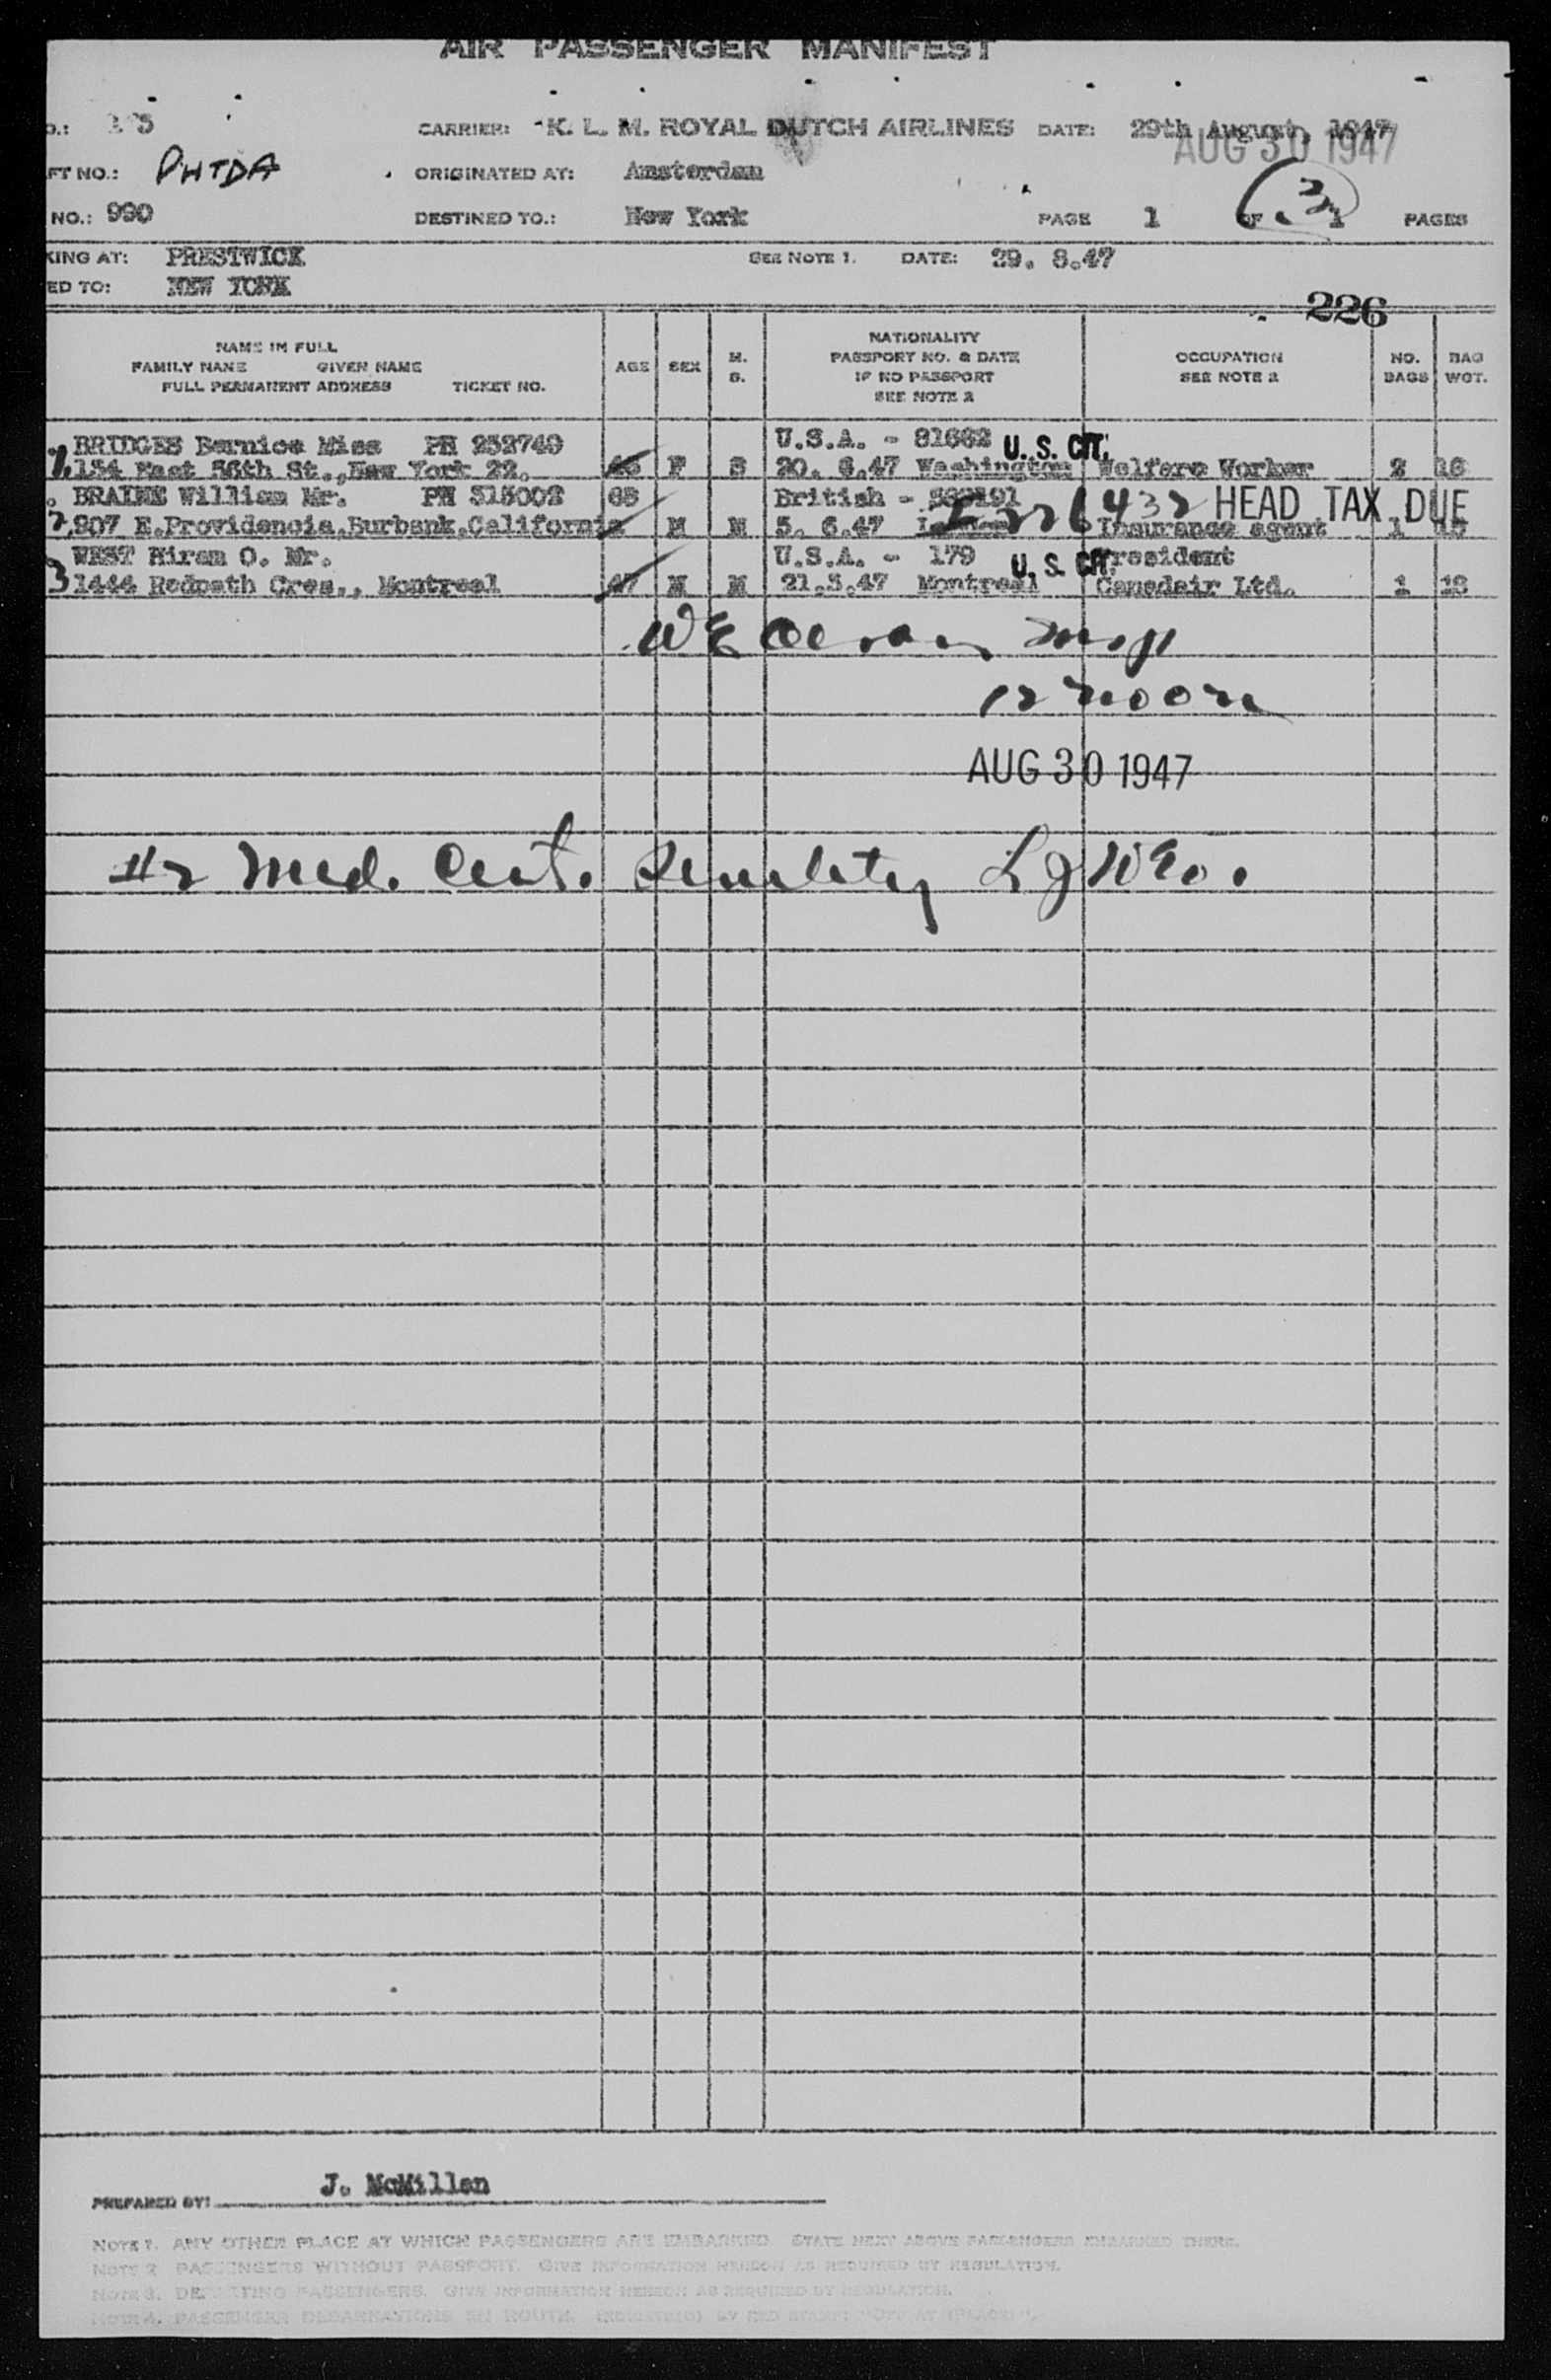 AIR PASSENGER MANIFEST
CARRIER: K. L. M. ROYAL DUTCH AIRLINES DATE: 29th August, 1947
AUG 30 1947
FT NO.: PHTDA ORIGINATED AT: Amsterdam
NO.: 990 DESTINED TO.: New York PAGE 1 OF 1 PAGES
3
KING AT: PRESTWICK SEE NOTE 1. DATE: 29. 8.47
ED TO: NEW YORK
226
NAME IN FULL
FAMILY NAME GIVEN NAME
FULL PERMANENT ADDRESS TICKET NO.
AGE SEX M. S.
NATIONALITY
PASSPORT NO. & DATE
IF NO PASSPORT
SEE NOTE 2
OCCUPATION
SEE NOTE 2
NO. BAGS
BAG WGT.
BRIDGES Bernice Miss PH 252749 U.S.A. - 81682 U.S. CIT.
1. 134 East 56th St., New York 22. F S 20. 6.47 Washington Welfare Worker 2 16
BRAINE William Mr. PH 315002 68 British - HEAD TAX DUE
2. 907 E.Providencia,Burbank,California M M 5. 6.47 Insurance agent 1
WEST Hiram O. Mr. U.S.A. - 179 U.S. CIT. President
3 1444 Redpath Cres., Montreal 47 M M 21.5.47 Montreal Canadair Ltd. 1 18
12 noon
AUG 30 1947
#2 Med. Cert. Senility
PREPARED BY: J. McMillan
NOTE 1. ANY OTHER PLACE AT WHICH PASSENGERS ARE EMBARKED STATE NEXT ABOVE PASSENGERS EMBARKED THERE.
NOTE 2 PASSENGERS WITHOUT PASSPORT. GIVE INFORMATION HEREON AS REQUIRED BY REGULATION.
NOTE 3. DEPARTING PASSENGERS. GIVE INFORMATION HEREON AS REQUIRED BY REGULATION.
NOTE 4. PASSENGER DEBARKATIONS EN ROUTE.